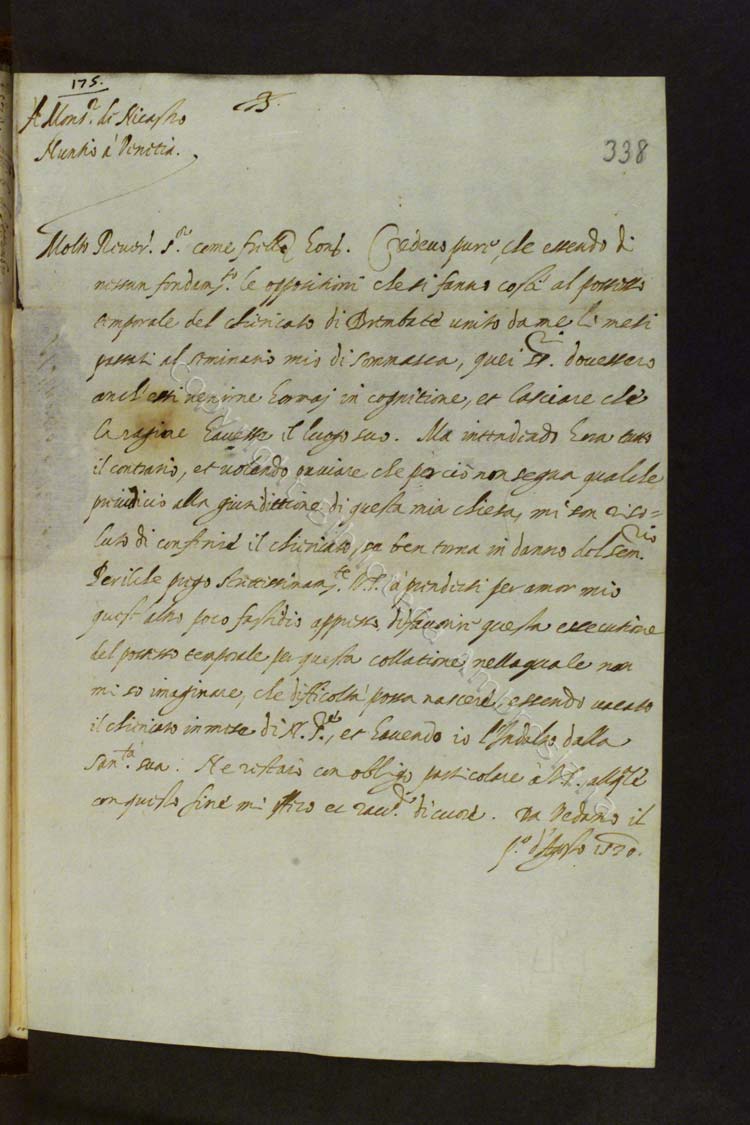 175.
A Mons.r di Nicastro
Nuntio à Venetia.
338
Molto Rever.do S.r come fratello hon. Credevo pure, che essendo di
nessun fondam.to le oppositioni che si fanno costì al possesso
temporale del chiericato di Brembate unito da me li mesi
passati al seminario mio di Sommasca, quei SS.ri dovessero
anch'essi venirne hormaj in cognitione, et lasciare che
la ragione havesse il luogo suo. Ma intendendo hora tutto
il contrario, et volendo ovviare che perciò non segua qualche
preiudicio alla giurisdittione di questa mia chiesa, mi son riso=
luto di conferire il chiericato, se ben torna in danno del sem.rio
Perilche prego strettissimam.te V.S. à prendersi per amor mio
quest'altro poco fastidio appresso, di favorire questa essecutione
del possesso temporale per questa collatione, nella quale non
mi so imaginare, che difficoltà possa nascere, essendo vacato
il chiericato in mese di N. S.re, et havendo io l'Indulto dalla
San.tà sua. Ne restarò con obligo particolare à V.S. alla q.le
con questo fine mi offero et racc.do di cuore. Da Vedano il
p.o d'Agosto 1570.